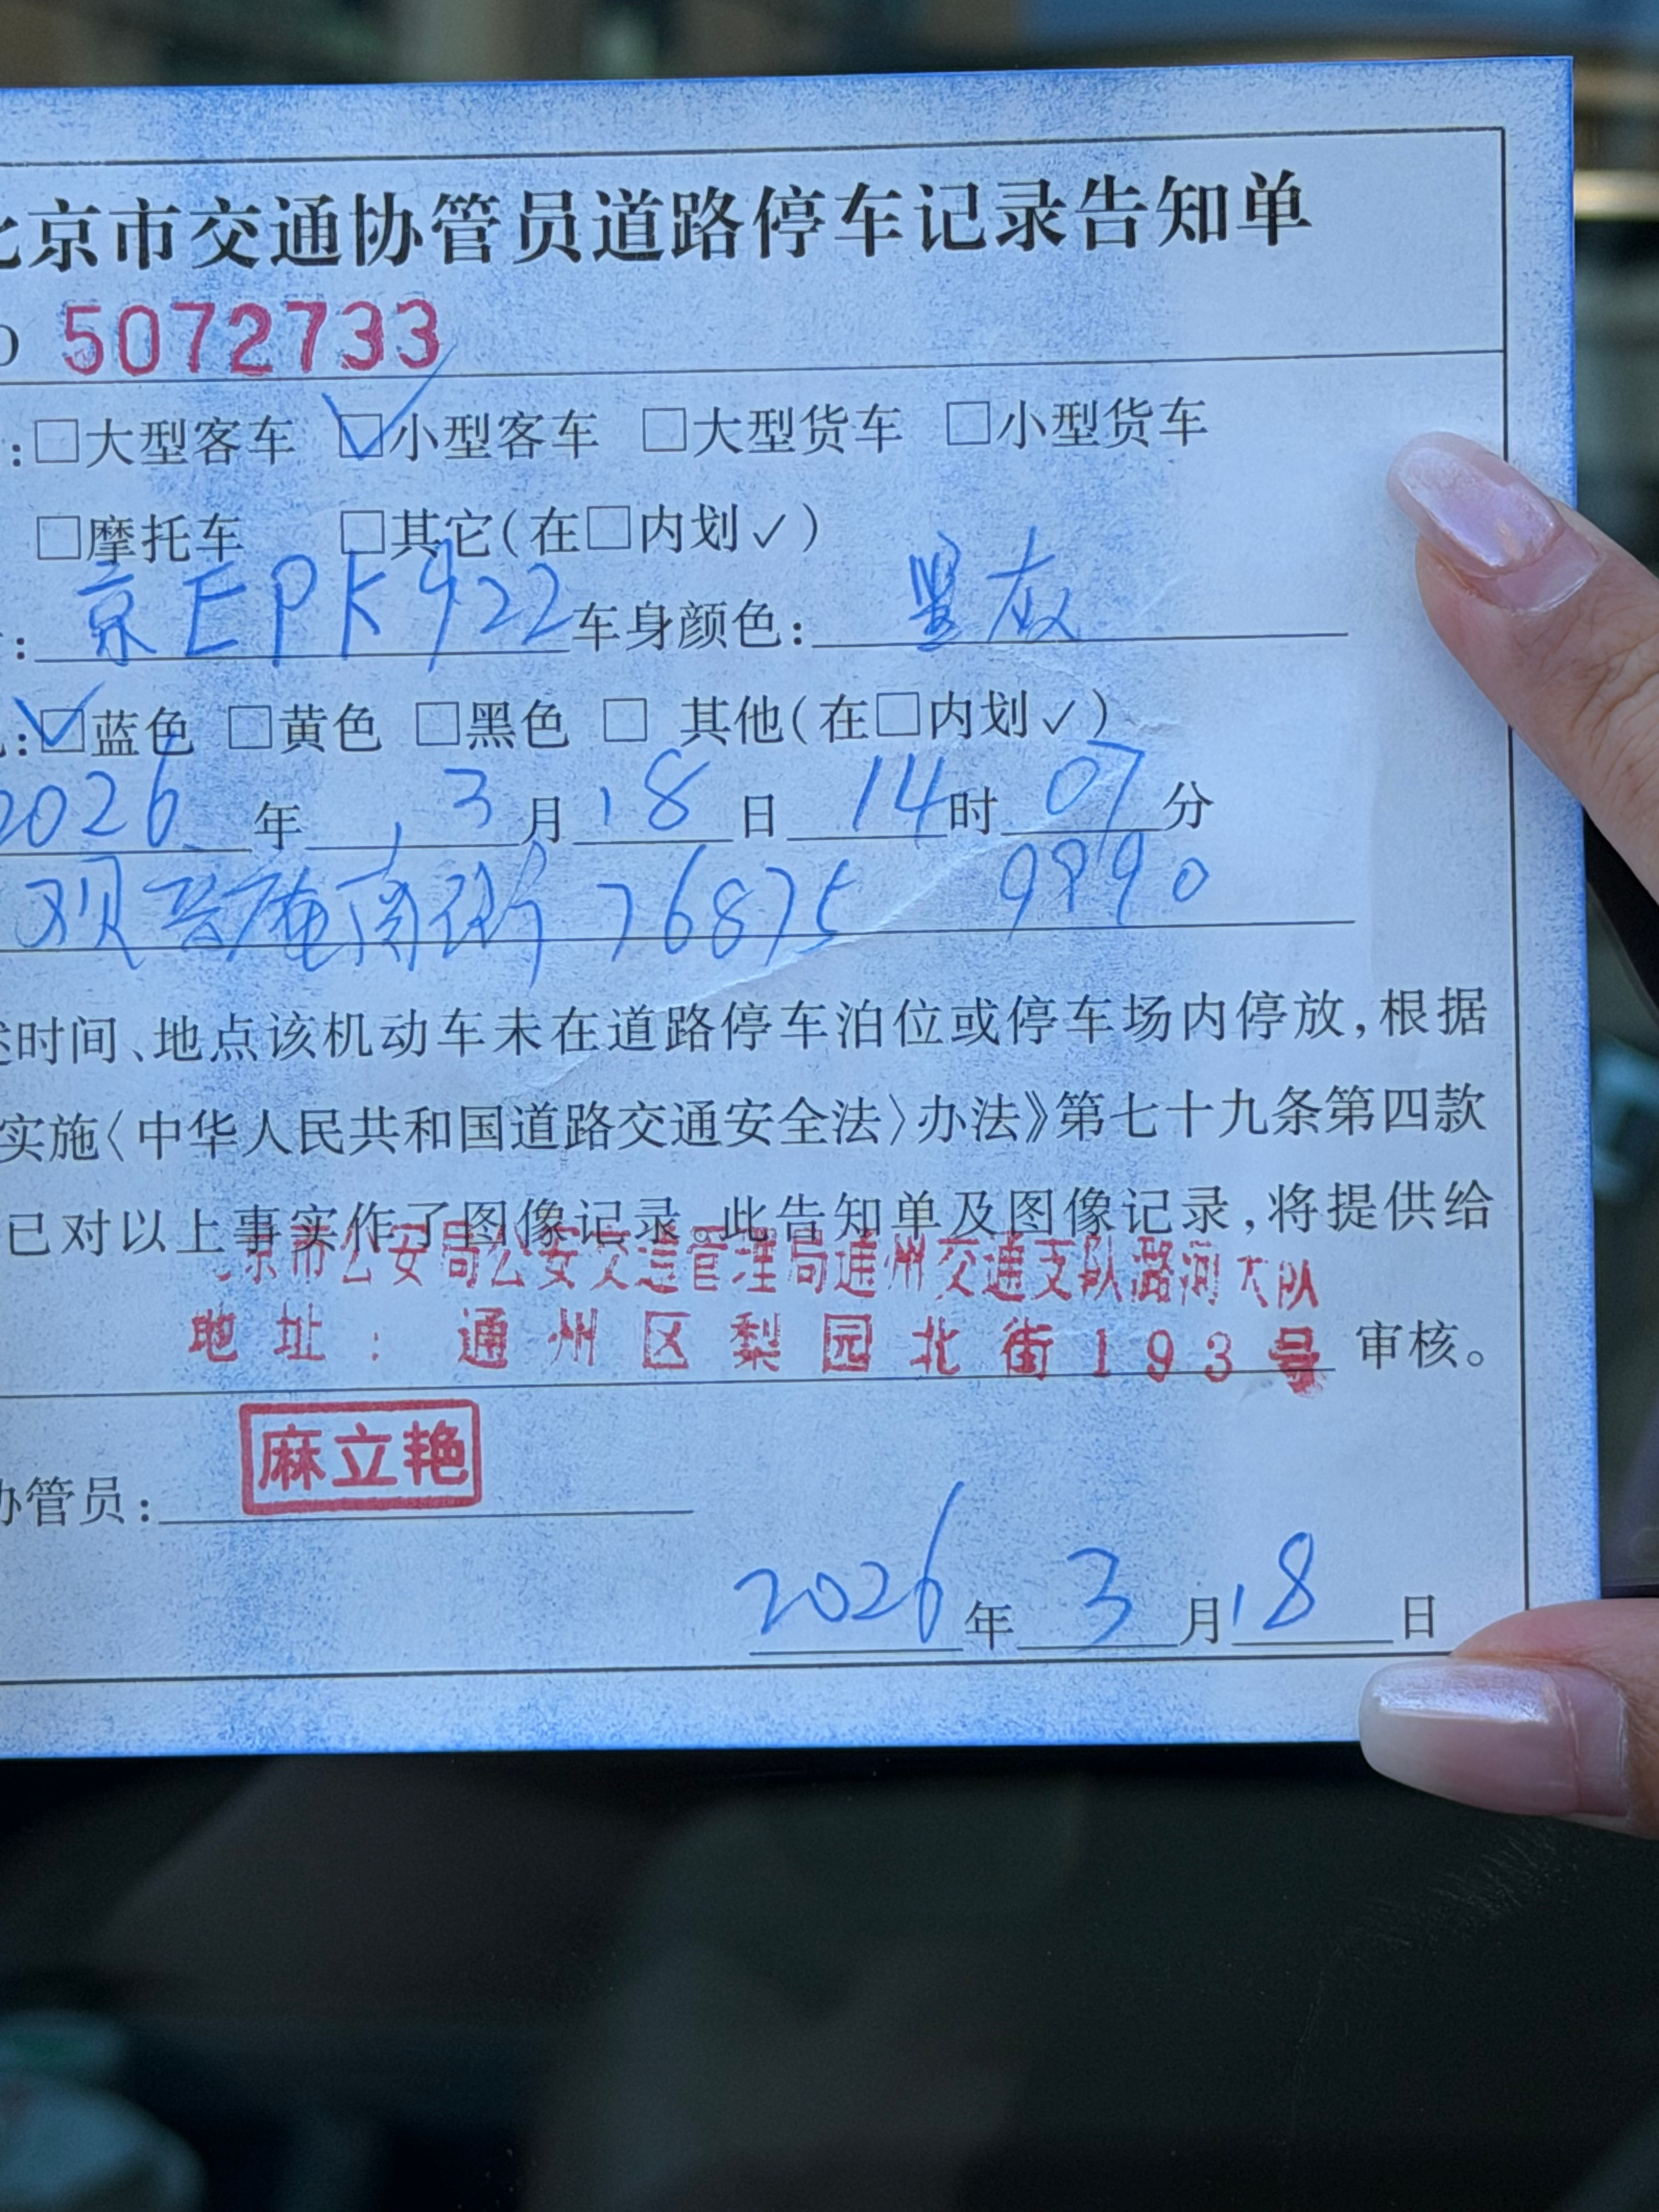 北京市交通协管员道路停车记录告知单
5072733
:□大型客车 ☑小型客车 □大型货车 □小型货车
□摩托车 □其它(在□内划✓)
:京EPK922车身颜色:黑灰
:☑蓝色 □黄色 □黑色 □ 其他(在□内划✓)
2026年3月18日14时07分
观音庵南街 76875 9990
述时间、地点该机动车未在道路停车泊位或停车场内停放,根据
实施〈中华人民共和国道路交通安全法〉办法》第七十九条第四款
已对以上事实作了图像记录。此告知单及图像记录,将提供给
北京市公安局公安交通管理局通州交通支队潞河大队
地址:通州区梨园北街193号 审核。
协管员:麻立艳
2026年3月18日